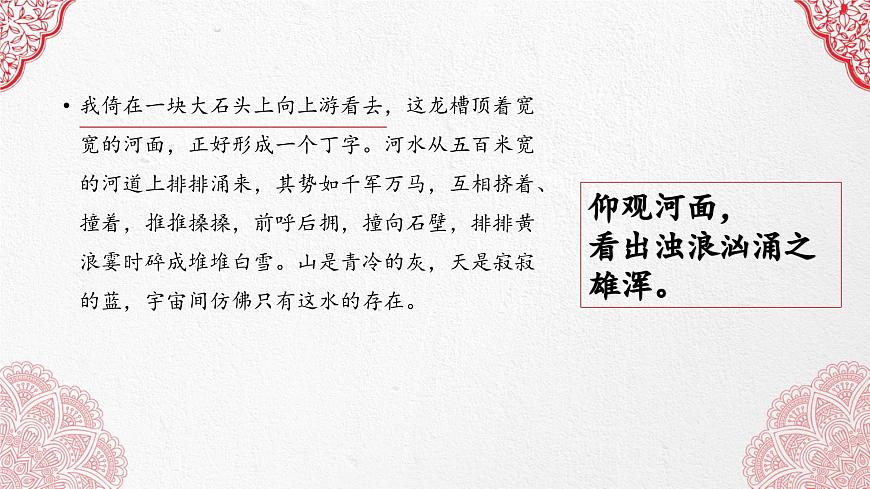 • 我倚在一块大石头上向上游看去，这龙槽顶着宽
宽的河面，正好形成一个丁字。河水从五百米宽
的河道上排排涌来，其势如千军万马，互相挤着、
撞着，推推搡搡，前呼后拥，撞向石壁，排排黄
浪霎时碎成堆堆白雪。山是青冷的灰，天是寂寂
的蓝，宇宙间仿佛只有这水的存在。
仰观河面，
看出浊浪汹涌之
雄浑。